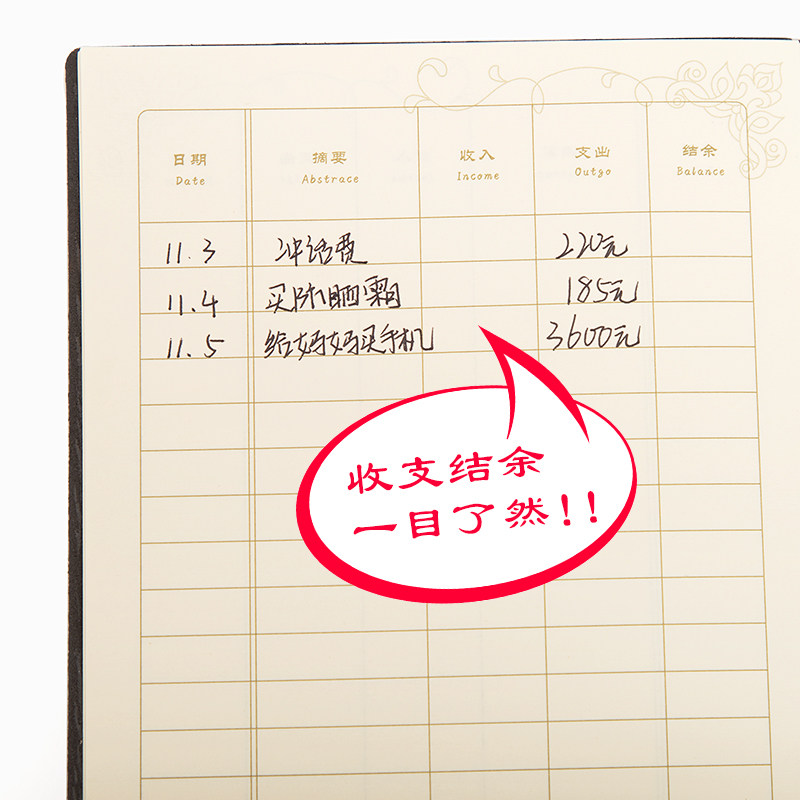 日期 摘要 收入 支出 结余
Date Abstrace Income Outgo Balance
11.3 冲话费 220元
11.4 买防晒霜 185元
11.5 给妈妈买手机 3600元
收支结余
一目了然!!